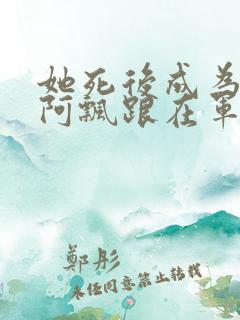 她死後成為
阿飄跟在軍
鄭彤
未任同意禁止轉載